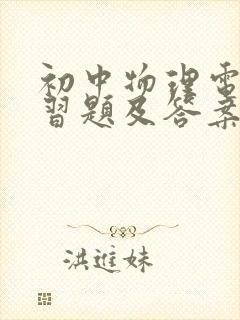 初中物理电
习题及答案
洪進妹